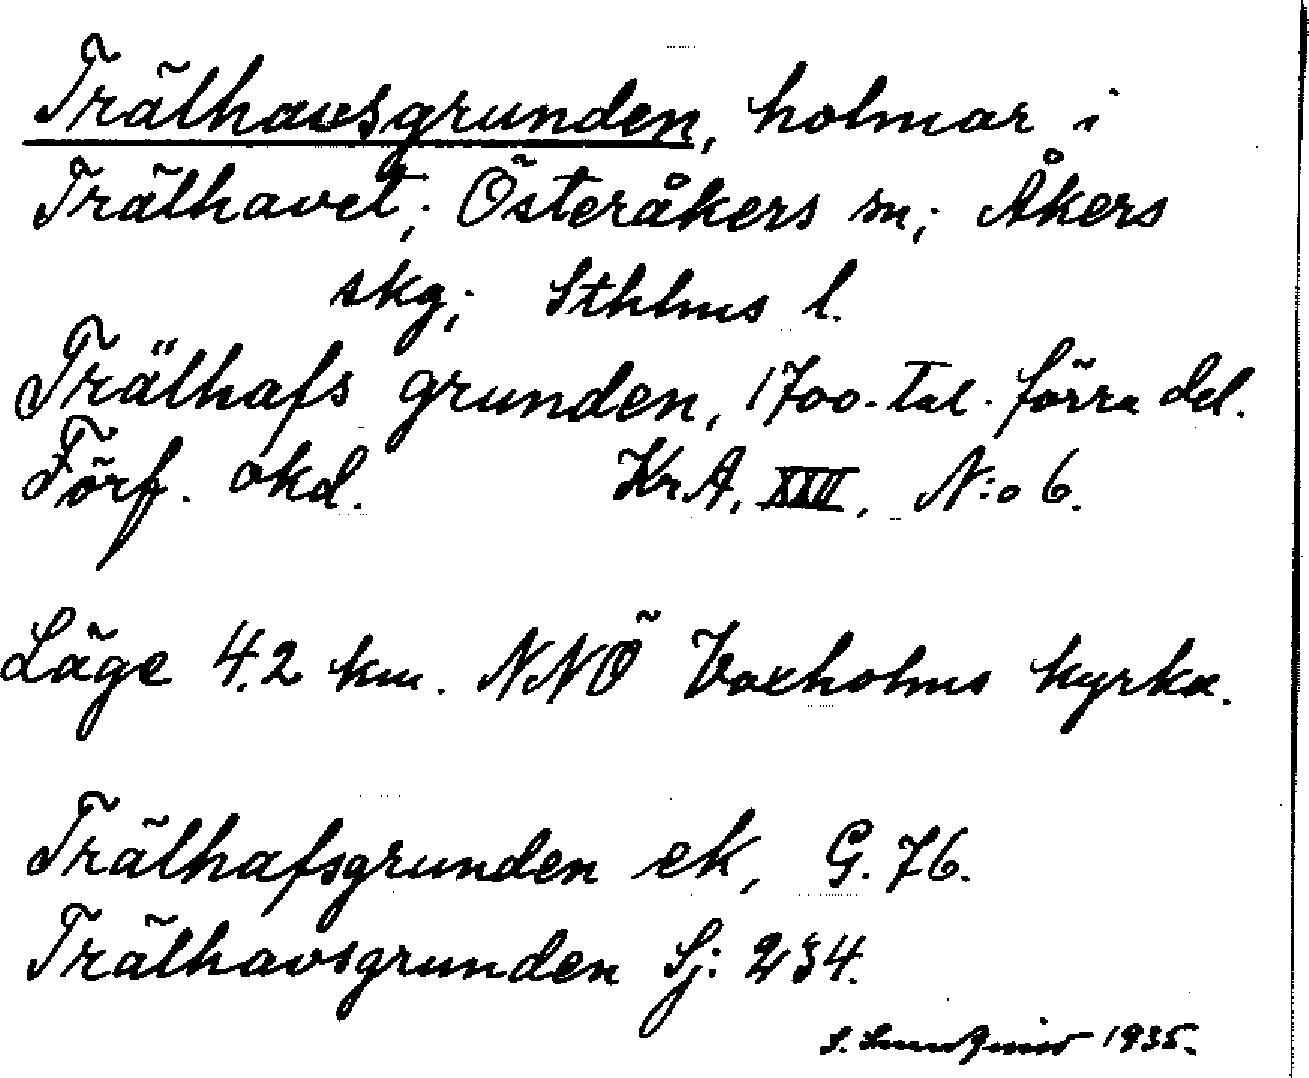 Trälhavsgrunden, holmar i
Trälhavet; Österåkers sn; Åkers
skg; Sthlms l.
Trälhafs grunden, 1700-tal. förra del.
Förf. okd. Kr.A. XXII, N:o 6.
Läge 4.2 km. NNÖ Vaxholms kyrka.
Trälhafsgrunden ek, G. 76.
Trälhavsgrunden Sj: 234.
S. 1935.